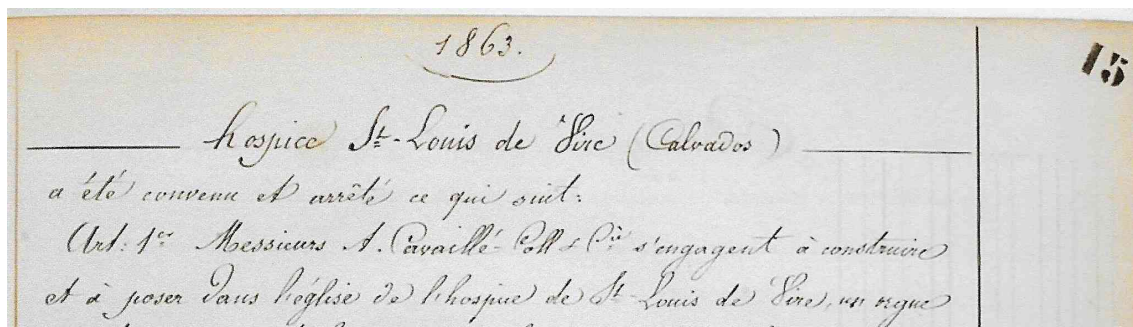 1863.
15
hospice St-Louis de Vire (Calvados)
a été convenu et arrêté ce qui suit:
Art: 1er Messieurs A. Cavaillé-Coll & Cie s'engagent à construire
et à poser dans l'église de l'hospice de St-Louis de Vire, un orgue